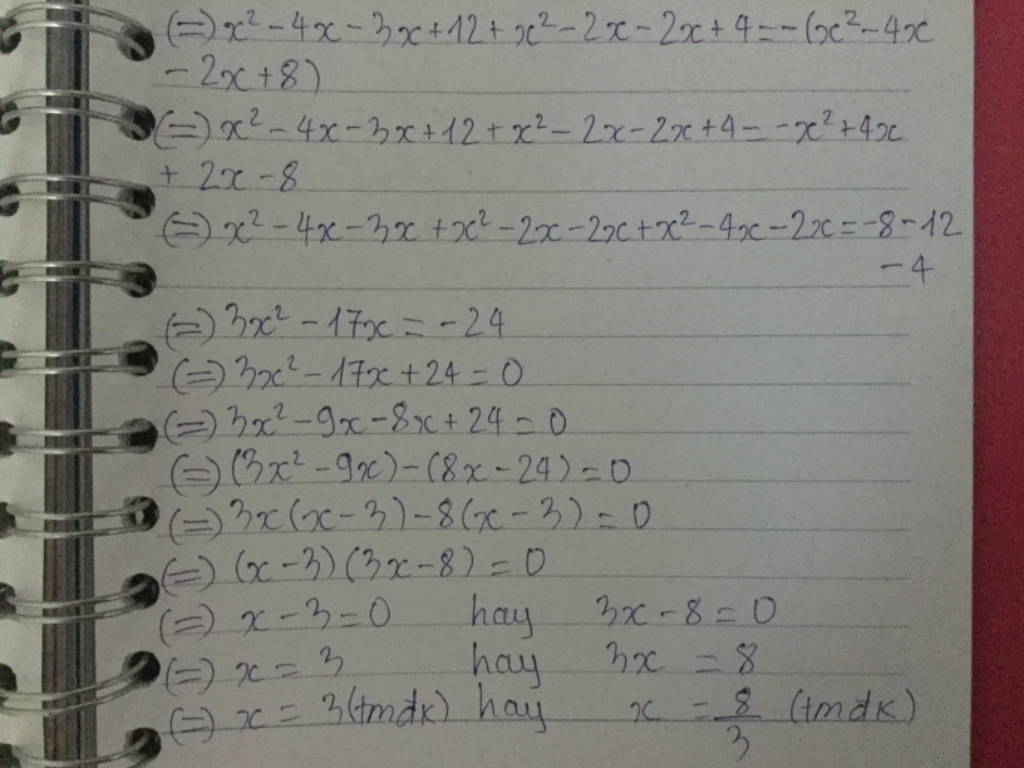 (=) x² - 4x - 3x + 12 + x² - 2x - 2x + 4 = -(x² - 4x
- 2x + 8)
(=) x² - 4x - 3x + 12 + x² - 2x - 2x + 4 = -x² + 4x
+ 2x - 8
(=) x² - 4x - 3x + x² - 2x - 2x + x² - 4x - 2x = -8 - 12
- 4
(=) 3x² - 17x = -24
(=) 3x² - 17x + 24 = 0
(=) 3x² - 9x - 8x + 24 = 0
(=) (3x² - 9x) - (8x - 24) = 0
(=) 3x(x - 3) - 8(x - 3) = 0
(=) (x - 3)(3x - 8) = 0
(=) x - 3 = 0 hay 3x - 8 = 0
(=) x = 3 hay 3x = 8
(=) x = 3 (tmdk) hay x = 8/3 (tmdk)